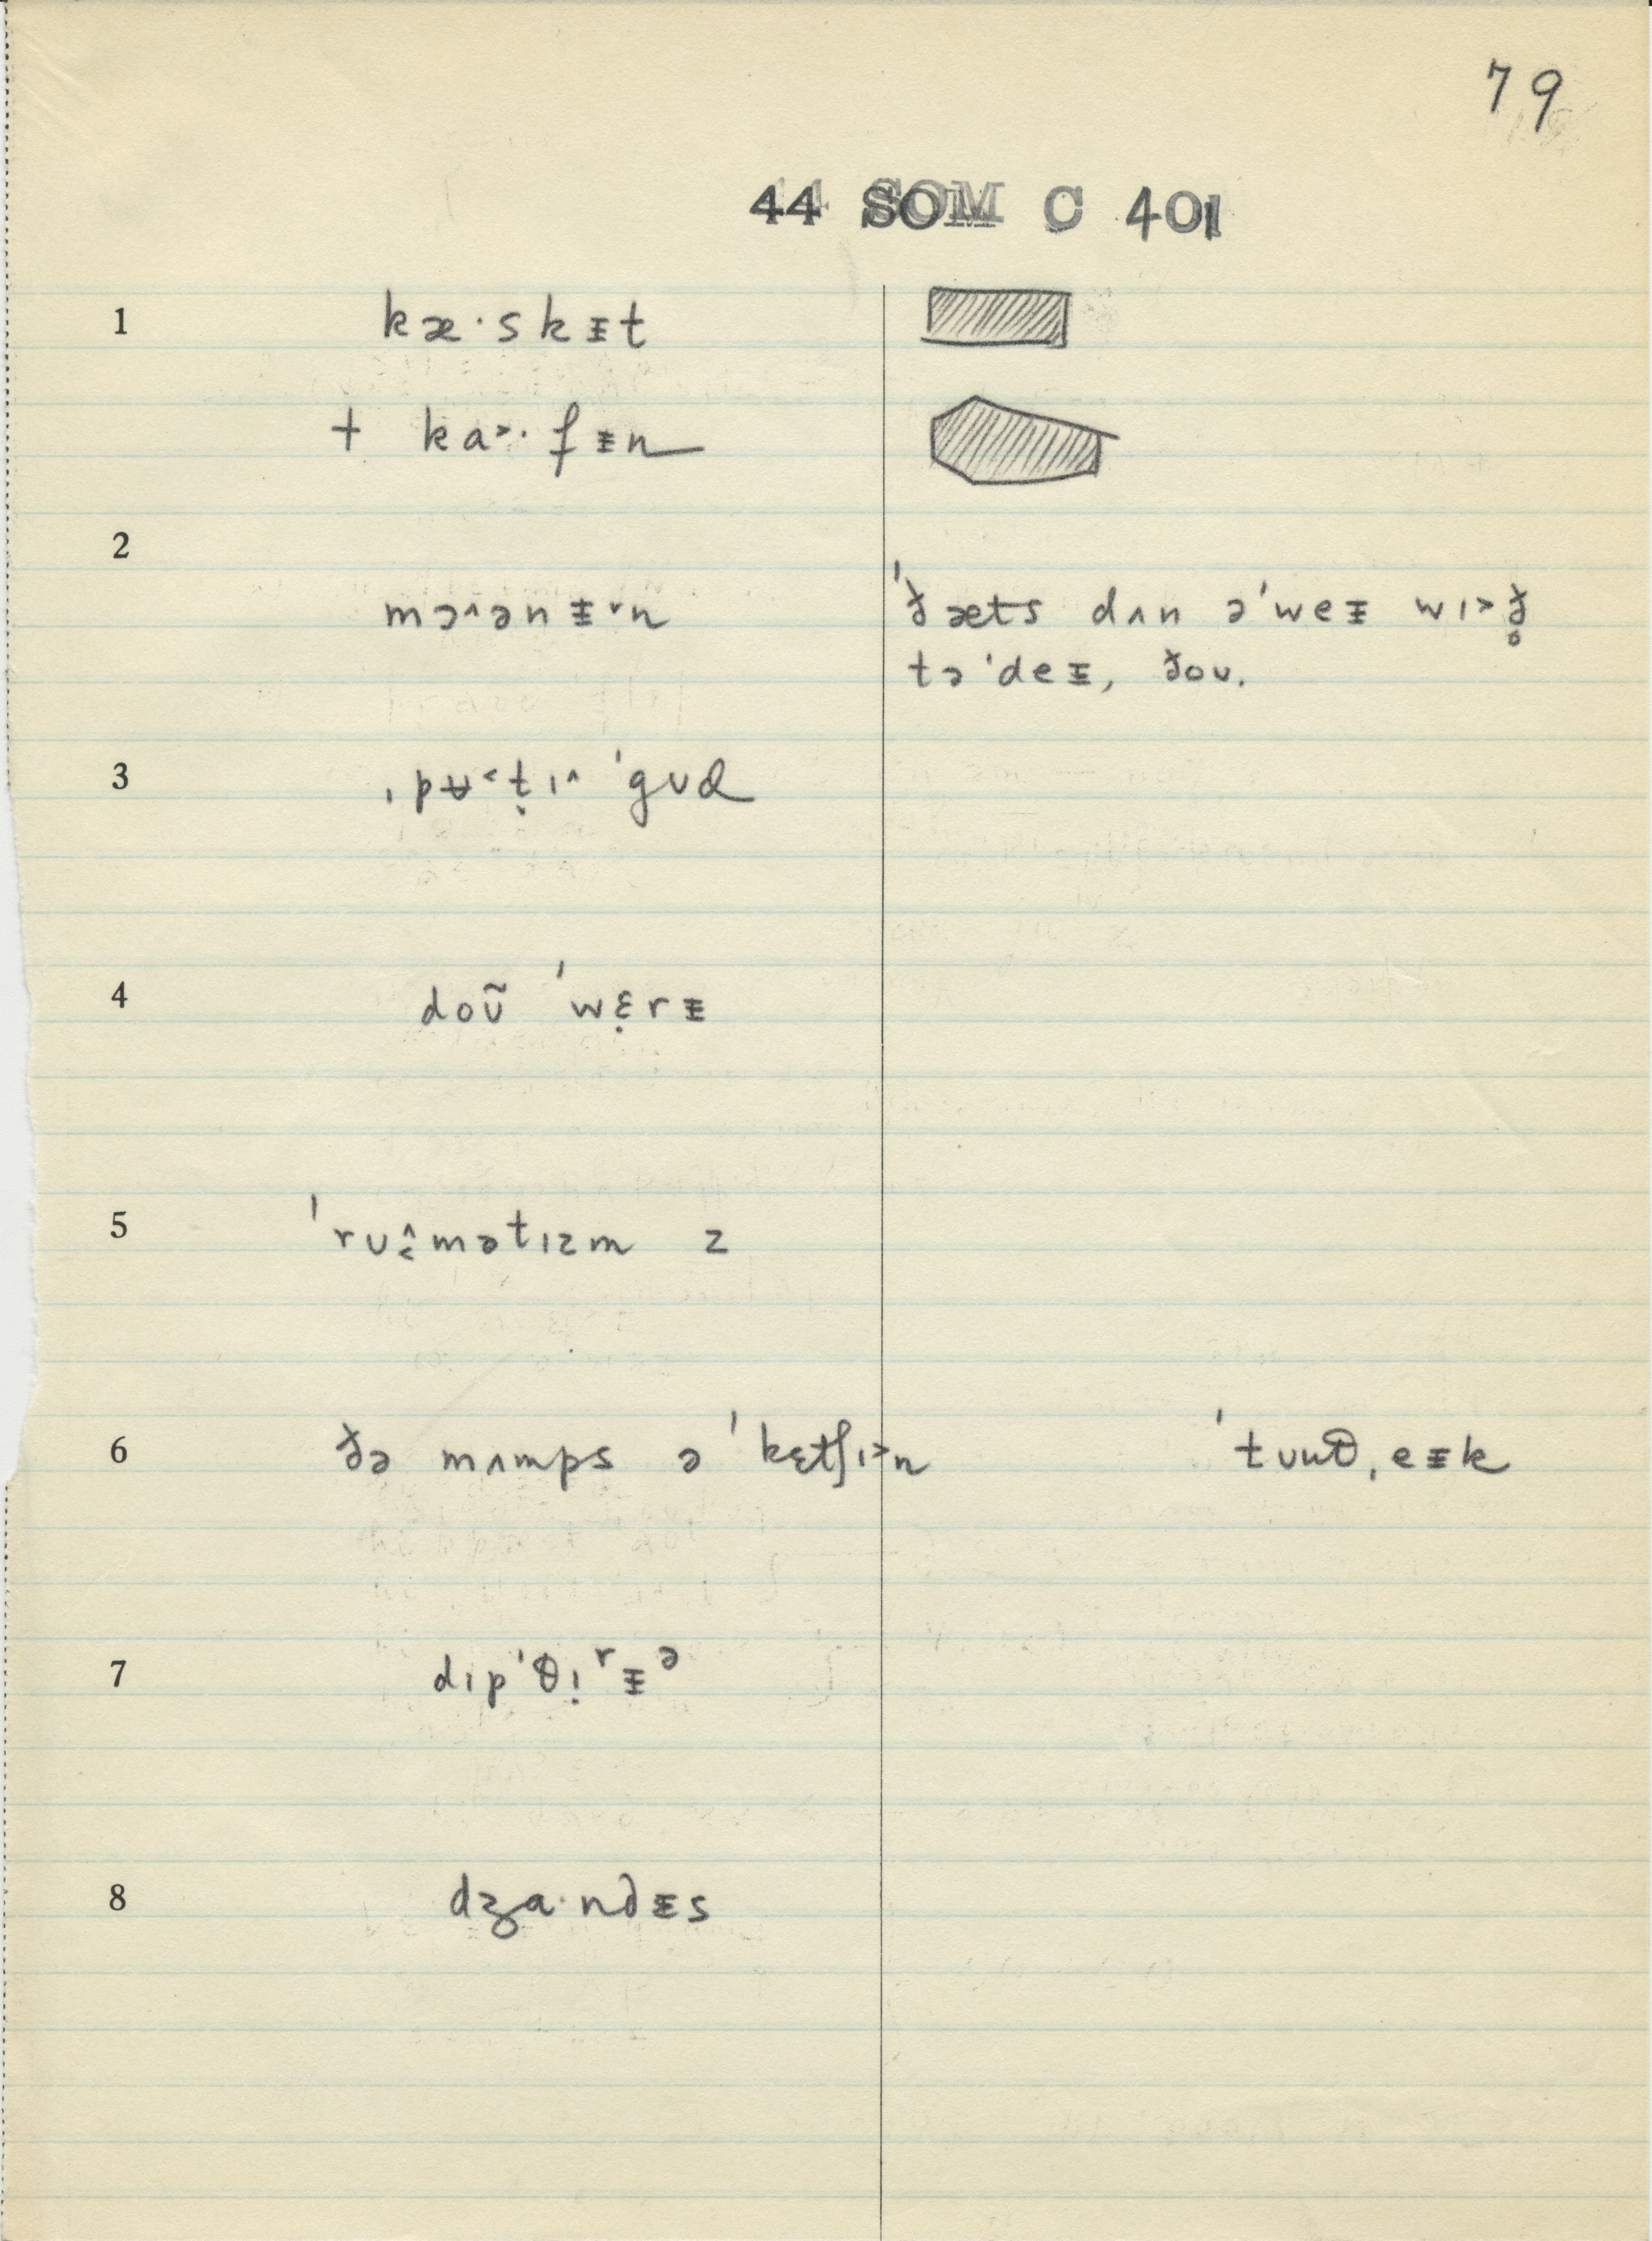 79
44 SOM C 401
1 kæ·skᵻt
† ka˃·fᵻn
2
mɔ˄ənᵻ˅n ˈðæts dʌn əˈweᵻ wɪ˃ð̥
təˈdeᵻ, ðoʊ.
3 ˌpʉ˂t̬ɪ˄ ˈgʊd
4 doʊ̃ ˈwɛ̣rᵻ
5 ˈrʊ˄˂mətɪzm z
6 ðə mʌmps ə ˈkɛtʃɪ˃n ˈtuθˌeᵻk
7 dɪpˈθɪ̣ʳᵻᵊ
8 dʒa·ndᵻs